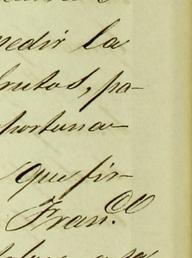 pedir la
frutos, pa-
portuna-
que fir-
Fran.co